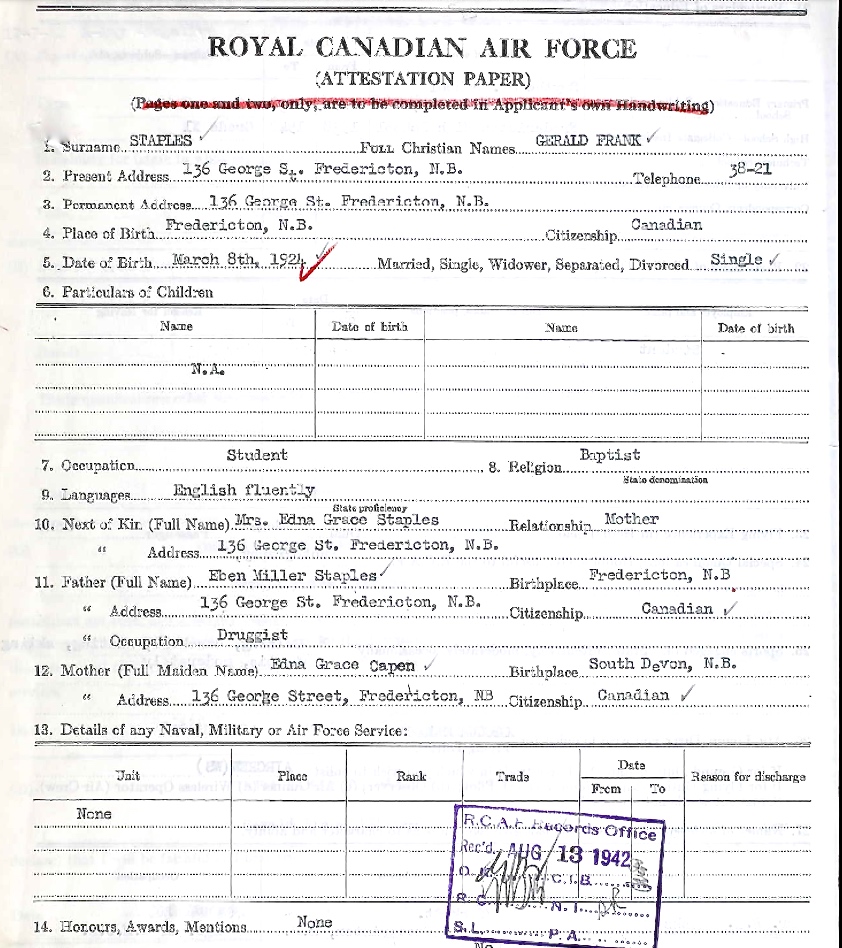 ROYAL CANADIAN AIR FORCE
(ATTESTATION PAPER)
(Pages one and two, only, are to be completed in Applicant's own Handwriting)
1. Surname STAPLES Full Christian Names GERALD FRANK
2. Present Address 136 George St. Fredericton, N.B. Telephone 38-21
3. Permanent Address 136 George St. Fredericton, N.B.
4. Place of Birth Fredericton, N.B. Citizenship Canadian
5. Date of Birth March 8th, 1924 Married, Single, Widower, Separated, Divorced Single
6. Particulars of Children
Name Date of birth Name Date of birth
N.A.
7. Occupation Student 8. Religion Baptist
State denomination
9. Languages English fluently
State proficiency
10. Next of Kin (Full Name) Mrs. Edna Grace Staples Relationship Mother
" Address 136 George St. Fredericton, N.B.
11. Father (Full Name) Eben Miller Staples Birthplace Fredericton, N.B
" Address 136 George St. Fredericton, N.B. Citizenship Canadian
" Occupation Druggist
12. Mother (Full Maiden Name) Edna Grace Capen Birthplace South Devon, N.B.
" Address 136 George Street, Fredericton, NB Citizenship Canadian
13. Details of any Naval, Military or Air Force Service:
Unit Place Rank Trade Date Reason for discharge
From To
None
R.C.A.F. Records Office
Rec'd. AUG 13 1942
C.I.B.
N.I.
S.L. P.A.
14. Honours, Awards, Mentions None